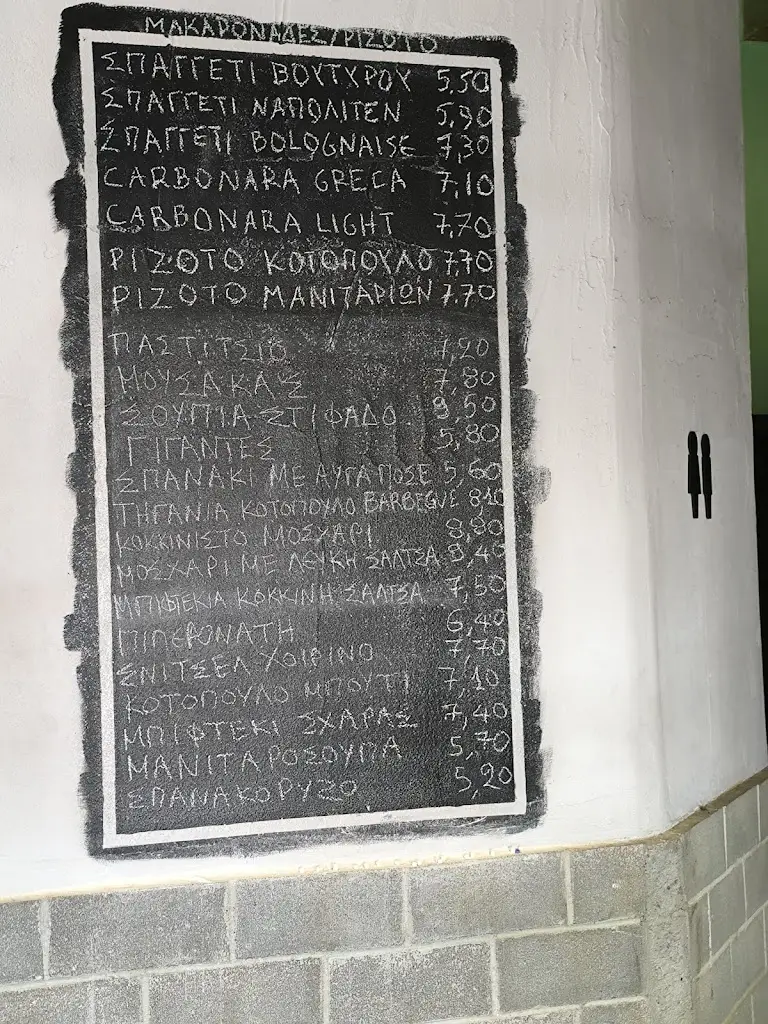 ΜΑΚΑΡΟΝΑΔΕΣ/ΡΙΖΟΤΟ
ΣΠΑΓΓΕΤΙ ΒΟΥΤΥΡΟΥ 5,50
ΣΠΑΓΓΕΤΙ ΝΑΠΟΛΙΤΕΝ 5,90
ΣΠΑΓΓΕΤΙ BOLOGNAISE 7,30
CARBONARA GRECA 7,10
CARBONARA LIGHT 7,70
ΡΙΖΟΤΟ ΚΟΤΟΠΟΥΛΟ 7,70
ΡΙΖΟΤΟ ΜΑΝΙΤΑΡΙΩΝ 7.70
ΠΑΣΤΙΤΣΙΟ 7,20
ΜΟΥΣΑΚΑΣ 7,80
ΣΟΥΠΙΑ ΣΤΙΦΑΔΟ 9,50
ΓΙΓΑΝΤΕΣ 5,80
ΣΠΑΝΑΚΙ ΜΕ ΑΥΓΑ ΠΟΣΕ 5,60
ΤΗΓΑΝΙΑ ΚΟΤΟΠΟΥΛΟ BARBEGUE 8,10
ΚΟΚΚΙΝΙΣΤΟ ΜΟΣΧΑΡΙ 8,80
ΜΟΣΧΑΡΙ ΜΕ ΛΕΥΚΗ ΣΑΛΤΣΑ 9,40
ΜΠΙΦΤΕΚΙΑ ΚΟΚΚΙΝΗ ΣΑΛΤΣΑ 7,50
ΠΙΠΕΡΟΝΑΤΗ 6,40
ΣΝΙΤΣΕΛ ΧΟΙΡΙΝΟ 7,70
ΚΟΤΟΠΟΥΛΟ ΜΠΟΥΤΙ 7,10
ΜΠΙΦΤΕΚΙ ΣΧΑΡΑΣ 7,40
ΜΑΝΙΤΑΡΟΣΟΥΠΑ 5,70
ΣΠΑΝΑΚΟΡΥΖΟ 5,20